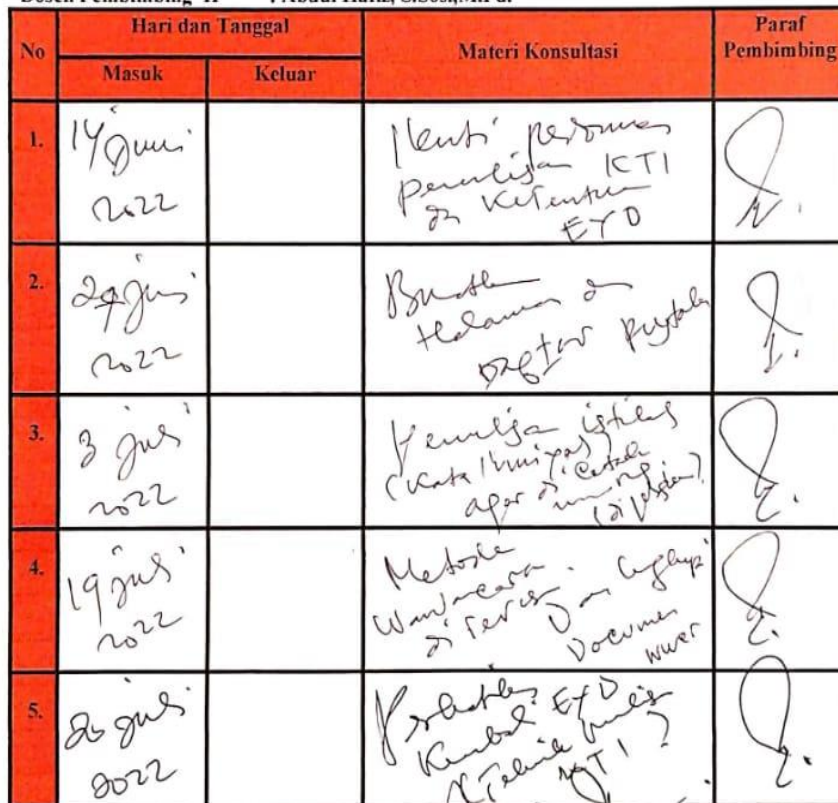 Dosen Pembimbing II : Abdul Hafiz, S.Sos.,M.Pd.
No
Hari dan Tanggal
Masuk
Keluar
Materi Konsultasi
Paraf
Pembimbing
1.
14 Juni
2022
Ikuti pedoman
penulisan KTI
dan Ketentuan
EYD
2.
Juni
2022
Buatlah
Halaman dan
Daftar Pustaka
3.
3 Juli
2022
Penulisan istilah
(Kata
agar di Cetak
miring
4.
19 Juli
2022
Metode
Wawancara
di revisi Dan lengkapi
Documen
5.
26 Juli
2022
Perbaiki
Kembali EYD
Teknik penulisan
KTI